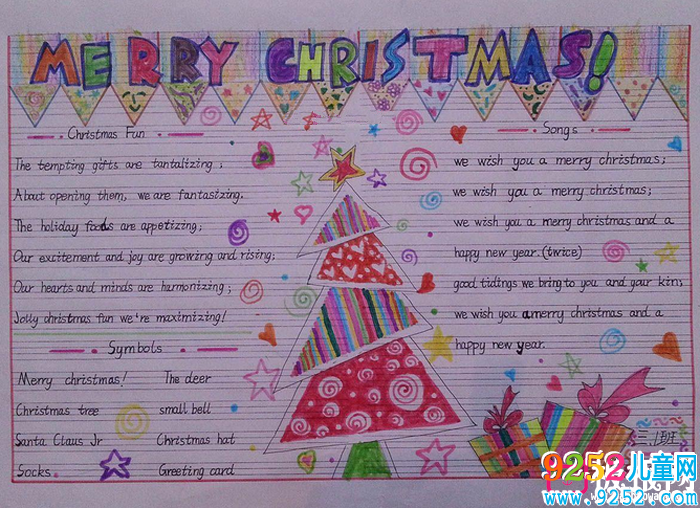 MERRY CHRISTMAS!
Christmas Fun
The tempting gifts are tantalizing;
About opening them, we are fantasizing.
The holiday foods are appetizing;
Our excitement and joy are growing and rising;
Our hearts and minds are harmonizing;
Jolly christmas fun we're maximizing!
Symbols
Merry christmas! The deer
Christmas tree small bell
Santa Claus Jr Christmas hat
Socks Greeting card
Songs
we wish you a merry christmas;
we wish you a merry christmas;
we wish you a merry christmas and a
happy new year.(twice)
good tidings we bring to you and your kin;
we wish you a merry christmas and a
happy new year.
9252儿童网
www.9252.com